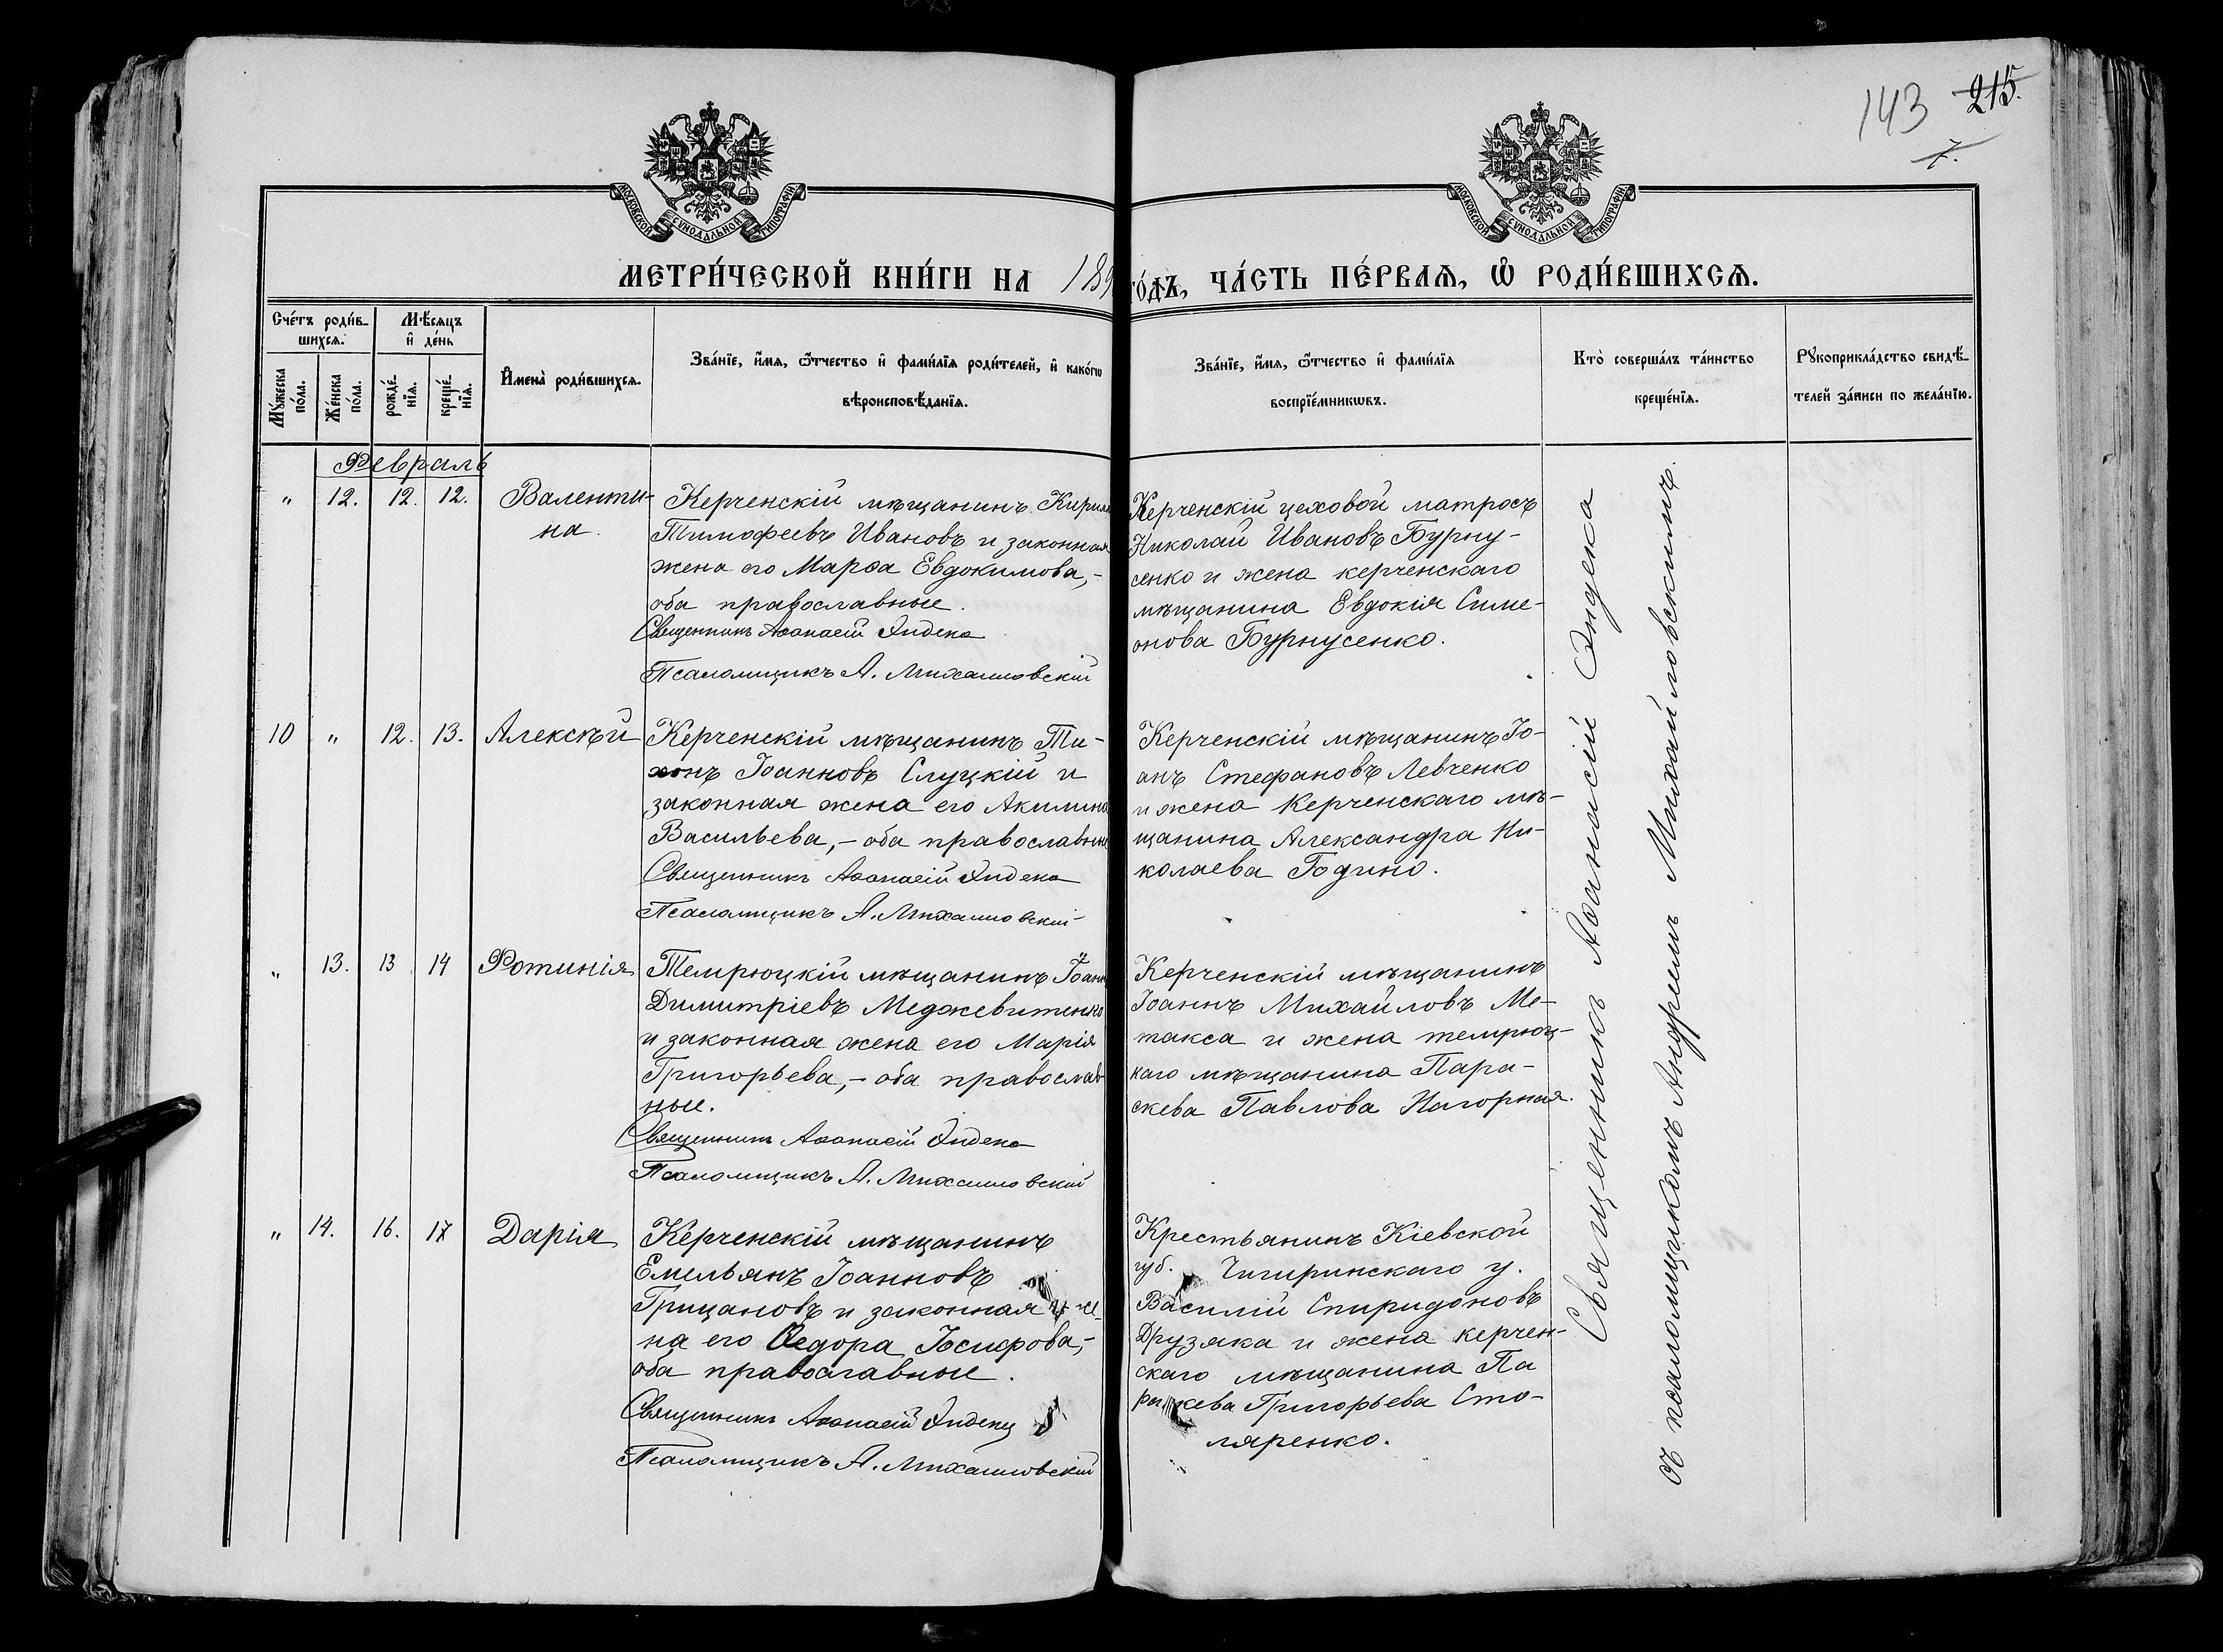 143 215.
7.
МОСКОВСКОЙ СѴНОДАЛЬНОЙ ТИПОГРАФІИ
МОСКОВСКОЙ СѴНОДАЛЬНОЙ ТИПОГРАФІИ
МЕТРИ́ЧЕСКОЙ КНИ́ГИ НА 189
ГО́ДЪ, ЧА́СТЬ ПЕ́РВАѦ, Ѽ РОДИ́ВШИХСѦ.
Сче́тъ роди́в-
шихсѧ.
Мѣ́сѧцъ
и҆ де́нь
Мꙋ́жеска
по́ла.
Же́нска
по́ла.
рожде́-
нїѧ.
креще́-
нїѧ.
И҆мена̀ роди́вшихсѧ.
Зва́нїе, и҆́мѧ, ѻ҆́тчество и҆ фами́лїѧ роди́телей, и҆ како́гѡ
вѣроисповѣ́данїѧ.
Зва́нїе, и҆́мѧ, ѻ҆́тчество и҆ фами́лїѧ
воспрїе́мникѡвъ.
Кто̀ соверша́лъ та́инство
креще́нїѧ.
Рꙋкоприкла́дство свидѣ́-
телей за́писи по жела́нїю.
Февраль
" 12. 12. 12. Валенти-
на.
Керченскій мѣщанинъ Кирилл
Тимофеевъ Ивановъ и законная
жена его Марѳа Евдокимова,-
оба православные.
Священникъ Аѳанасій Эндека
Псаломщикъ А. Михайловскій
Керченскій цеховой матросъ
Николай Ивановъ Бурну-
сенко и жена керченскаго
мѣщанина Евдокія Симе-
онова Бурнусенко.
10 " 12. 13. Алексѣй
Керченскій мѣщанинъ Ти-
хонъ Іоанновъ Слуцкій и
законная жена его Акилина
Васильева,- оба православные
Священникъ Аѳанасій Эндека
Псаломщикъ А. Михайловскій
Керченскій мѣщанинъ Іо-
анъ Стефановъ Левченко
и жена Керченскаго мѣ-
щанина Александра Ни-
колаева Година.
" 13. 13 14 Фотинія
Темрюцкій мѣщанинъ Іоанн
Димитріевъ Меджевитенко
и законная жена его Марія
Григорьева,- оба православ
ные.
Священникъ Аѳанасій Эндека
Псаломщикъ А. Михайловскій
Керченскій мѣщанинъ
Іоаннъ Михайловъ Ме-
такса и жена темрюц-
каго мѣщанина Пара-
скева Павлова Нагорная.
" 14. 16. 17 Дарія
Керченскій мѣщанинъ
Емельянъ Іоанновъ
Грицановъ и законная же-
на его Ѳедора Іосифова,-
оба православные.
Священникъ Аѳанасій Эндека
Псаломщикъ А. Михайловскій
Крестьянинъ Кіевской
губ. Чигиринскаго у.
Василій Спиридоновъ
Друзяка и жена керчен-
скаго мѣщанина Па
раскева Григорьева Сто-
ляренко.
Священникъ Аѳанасій Эндека
съ псаломщикомъ Андреемъ Михайловскимъ.